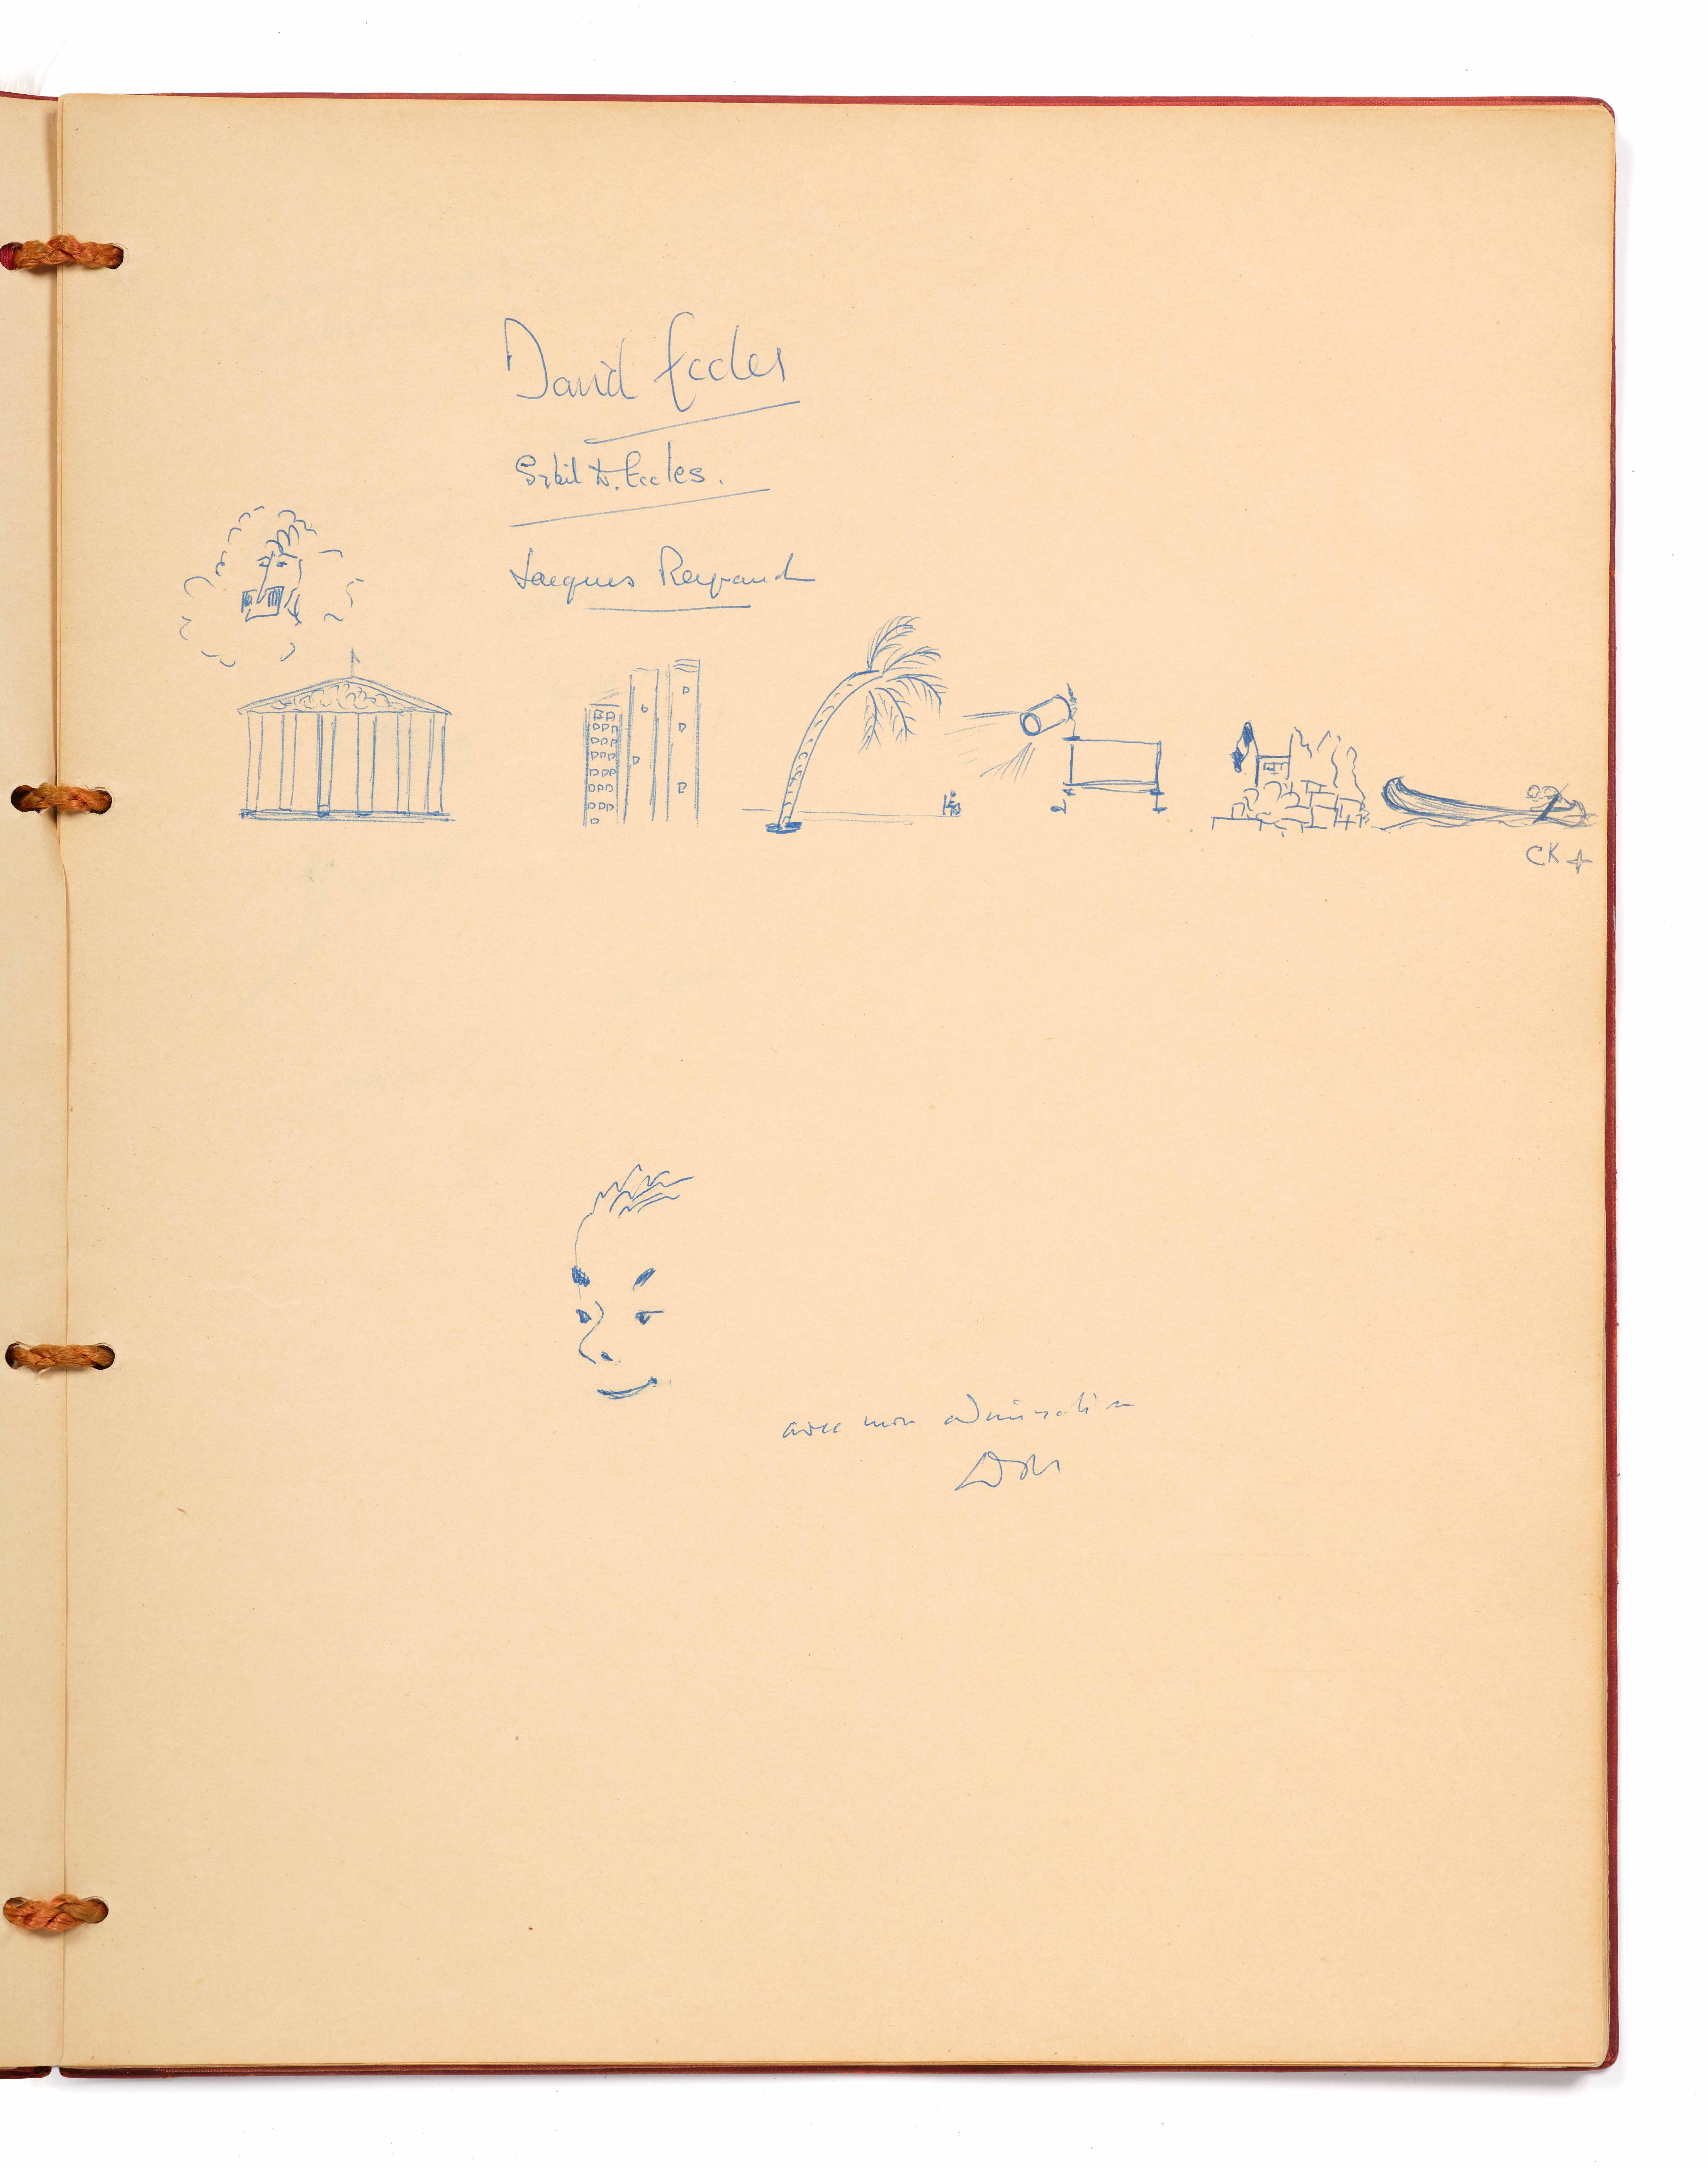 David Eccles
Sybil Eccles.
Jacques
CK
avec mon admiration